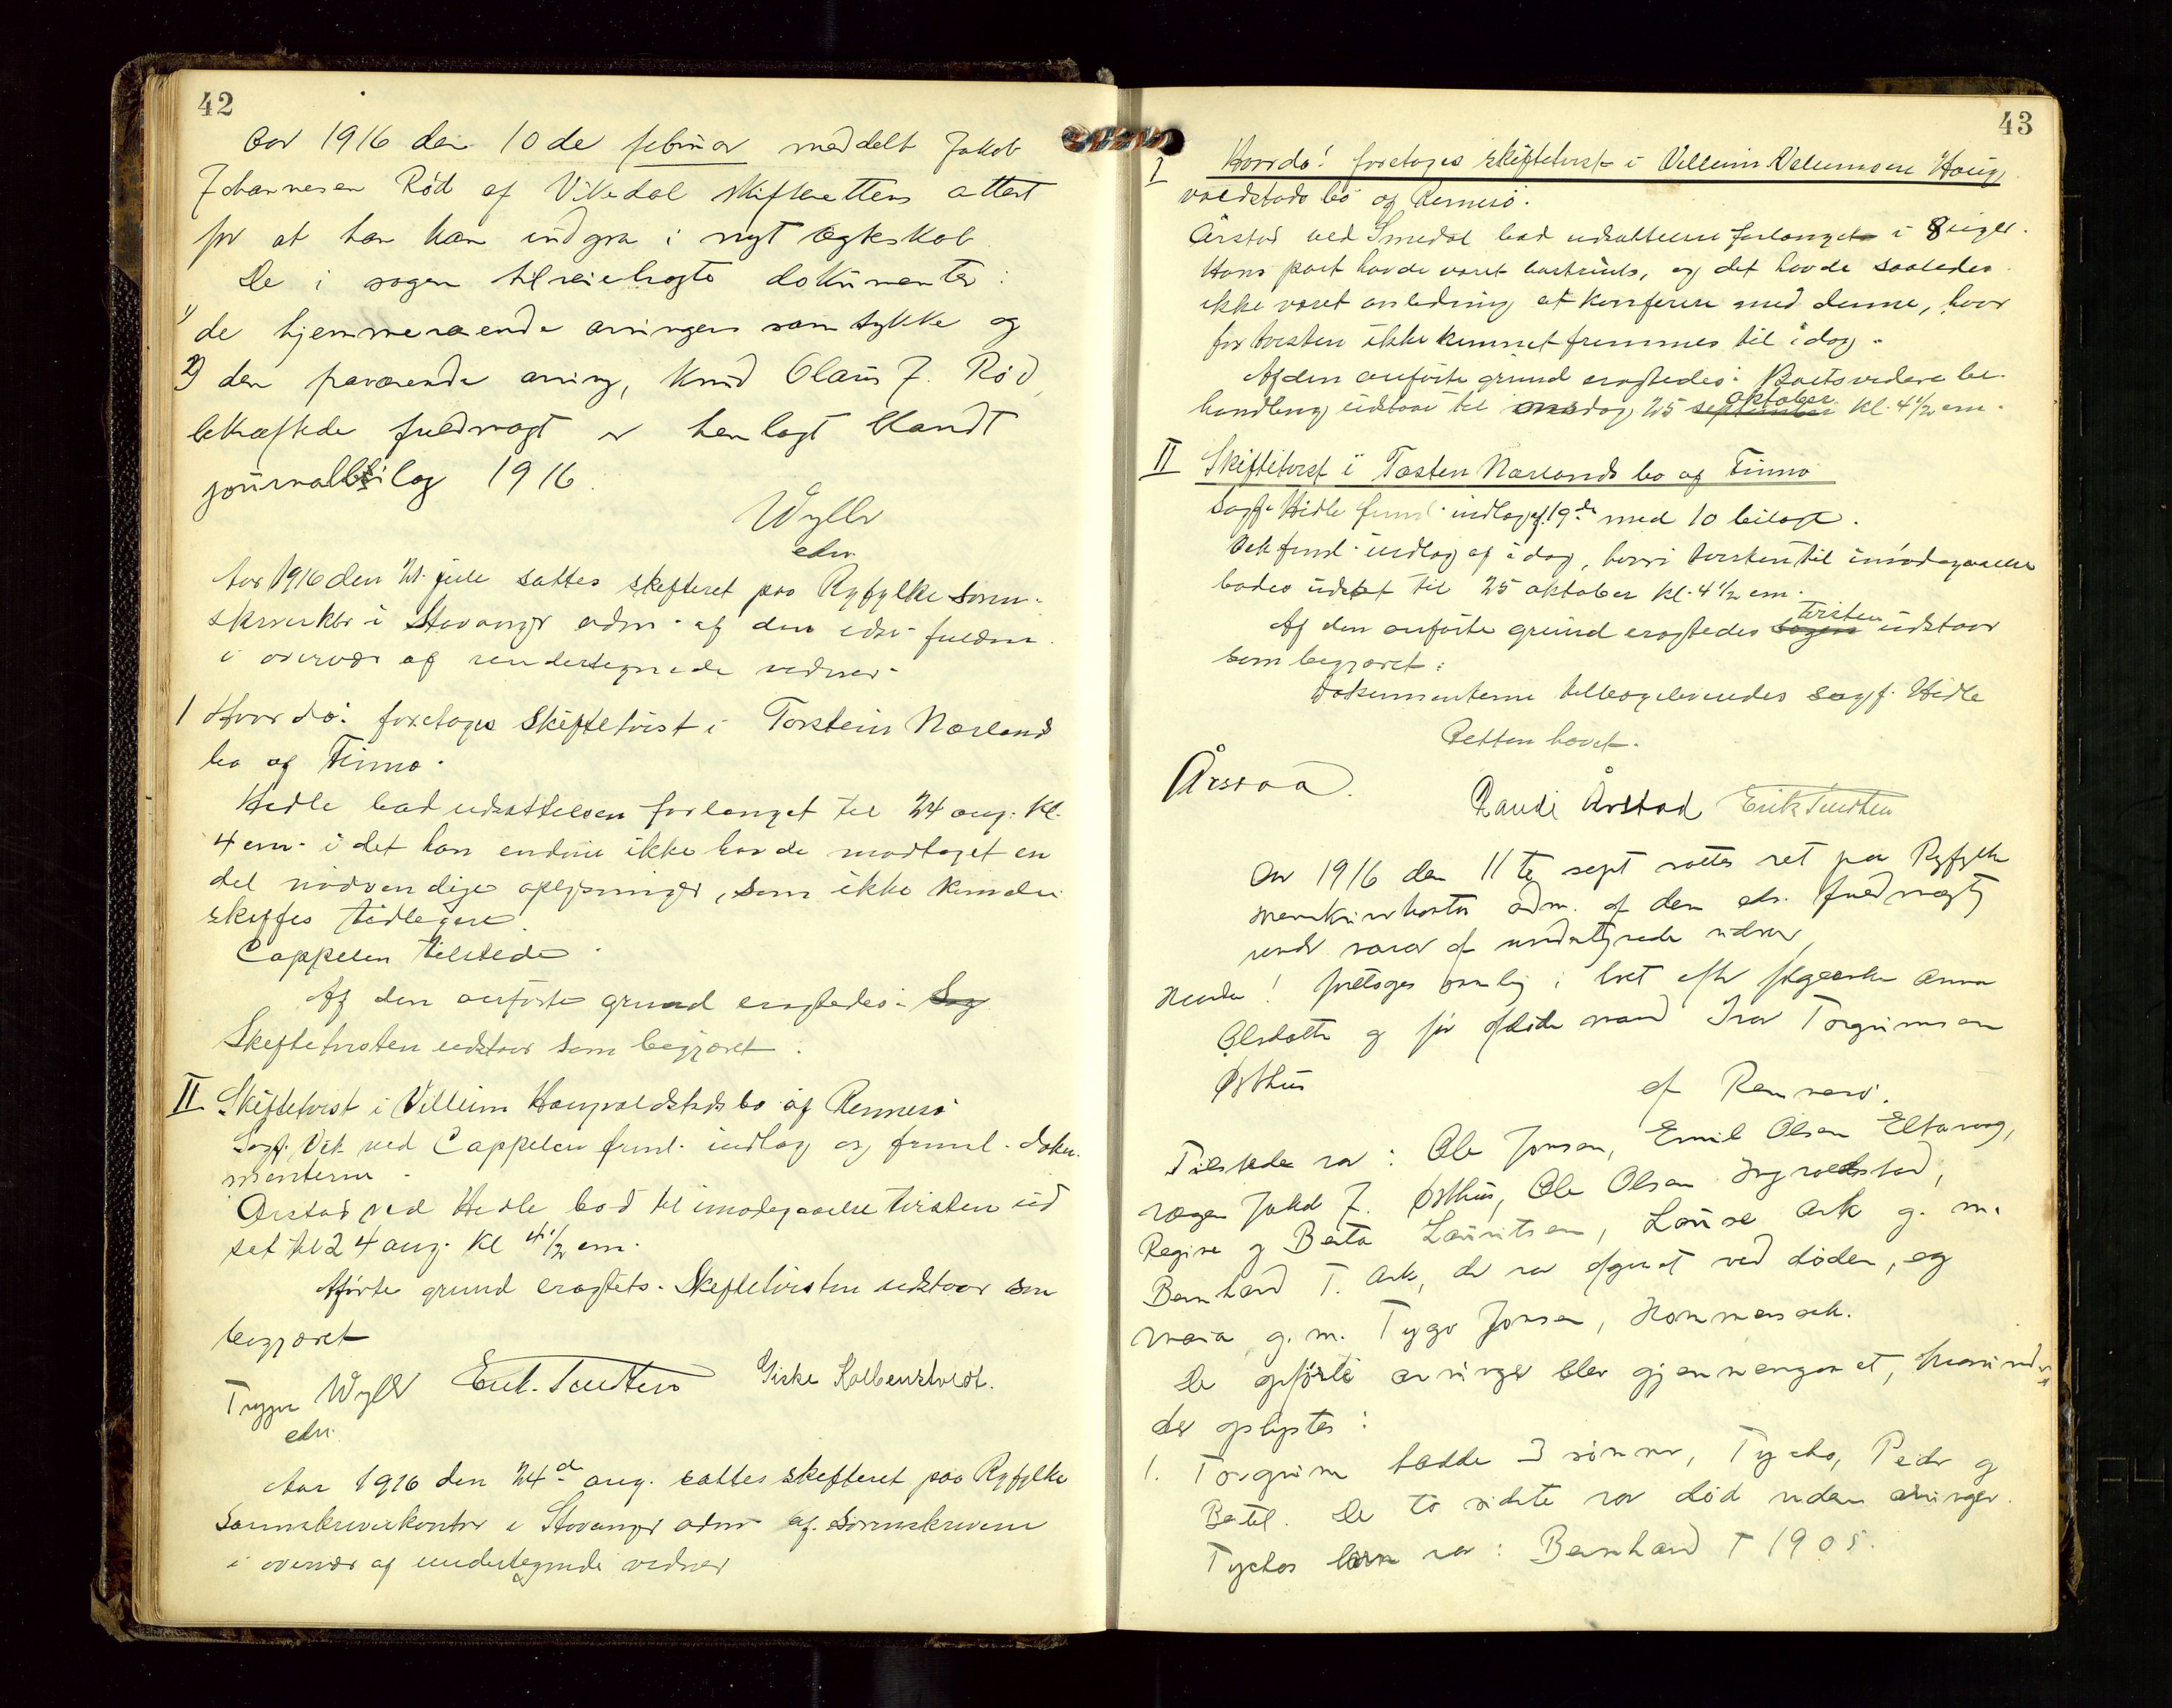 42
Aar 1916 den 10de februar meddelt Jakob
Johannesen Rød af Vikedal skifterettens attest
for at han kan indgaa i nyt ægteskab.
De i sagen tilveiebragte dokumenter:
1) de hjemmeværende arvingers samtykke og
2) den fraværende arving, Knud Olaus J. Rød,
bekræftede fuldmagt er henlagt blandt
journalbilag 1916.
Wyller
edsv.
Aar 1916 den 21. juli sattes skifteret paa Ryfylke soren-
skriverktr i Stavanger adm. af den edsv. fuldm.
i overvær af undertegnede vidner.
1 Hvorda: foretoges skiftetvist i Torstein Nærland
bo af Finnø.
Hidle bad udsættelsen forlænget til 24 aug. kl.
4 em. i det han endnu ikke havde modtaget en
del nødvendige oplysninger, som ikke kunde
skaffes tidligere.
Cappelen tilstede.
Af den anførte grund eragtedes: Sag
Skiftetvisten udstaar som begjæret.
II Skiftetvist i Villum Haugvaldstads bo af Rennesø
Sagf. Vik ved Cappelen freml. indlæg og freml. doku-
menterne.
Årstad ved Hidle bad til imødegaaelse tvisten ud
sat til 24 aug. kl 4 1/2 em.
Afførte grund eragtets. Skiftetvisten udstaar som
begjæret
Trygve Wyller
edsv.
Erik Knudsen Giske Kolbenstvedt.
Aar 1916 den 24de aug. sattes skifteret paa Ryfylke
Sorenskriverkontor i Stavanger adm. af Sorenskriveren
i overvær af undertegnede vidner
43
I Hvorda! foretoges skiftetvist i Villum Villumsen Haug
valdstads bo af Rennesø.
Årstad ved Smedal bad udsættelsen forlænget i 8 uger.
Hans part havde været bortreist, og det havde saaledes
ikke været anledning at konferere med denne, hvor
for tvisten ikke kunnet fremmes til idag.
Af den anførte grund eragtedes: Boets videre be-
handling udstaar til onsdag 25 september oktober kl. 4 1/2 em.
II Skiftetvist i Tosten Nærlands bo af Finnø
Sagf. Hidle freml. indlæg af 19de med 10 bilage.
Vik freml. indlæg af idag, hvori tvisten til imødegaaelse
bades udsat til 25 oktober kl. 4 1/2 em.
Af den anførte grund eragtedes sagen tvisten udstaar
som begjæret:
Dokumenterne tilbageleveredes sagf. Hidle
Retten hævet.
Årstad.
Raudi Årstad Erik Knudsen
Aar 1916 den 11te sept sattes ret paa Ryfylke
sorenskriverkontor adm. af den edsv. fuldmægtig
under nærvær af undertegnede vidner
Hvorda! foretoges samling i boet efter
Olsdatter og før afdøde mand Ivar Torgrimsen
Østhus
af Rennesø.
Tilstede var: Ole Jonsen, Emil Olsen Eltarvaag,
værgen Jakob J. Østhus, Ole Olsen
Regine og Berta Lauritsen, Louise Ask g. m.
Bernhard T. Ask, der var afgaaet ved døden, og
Maria g. m. Tygo Jonsen, Hommersak.
De opførte arvinger blev gjennemgaaet, hvorunder
der oplystes:
1. Torgrim hadde 3 sønner, Tycho, Peder og
Betel. De to sidste var død uden arvinger.
Tychos barn var: Bernhard † 1905.